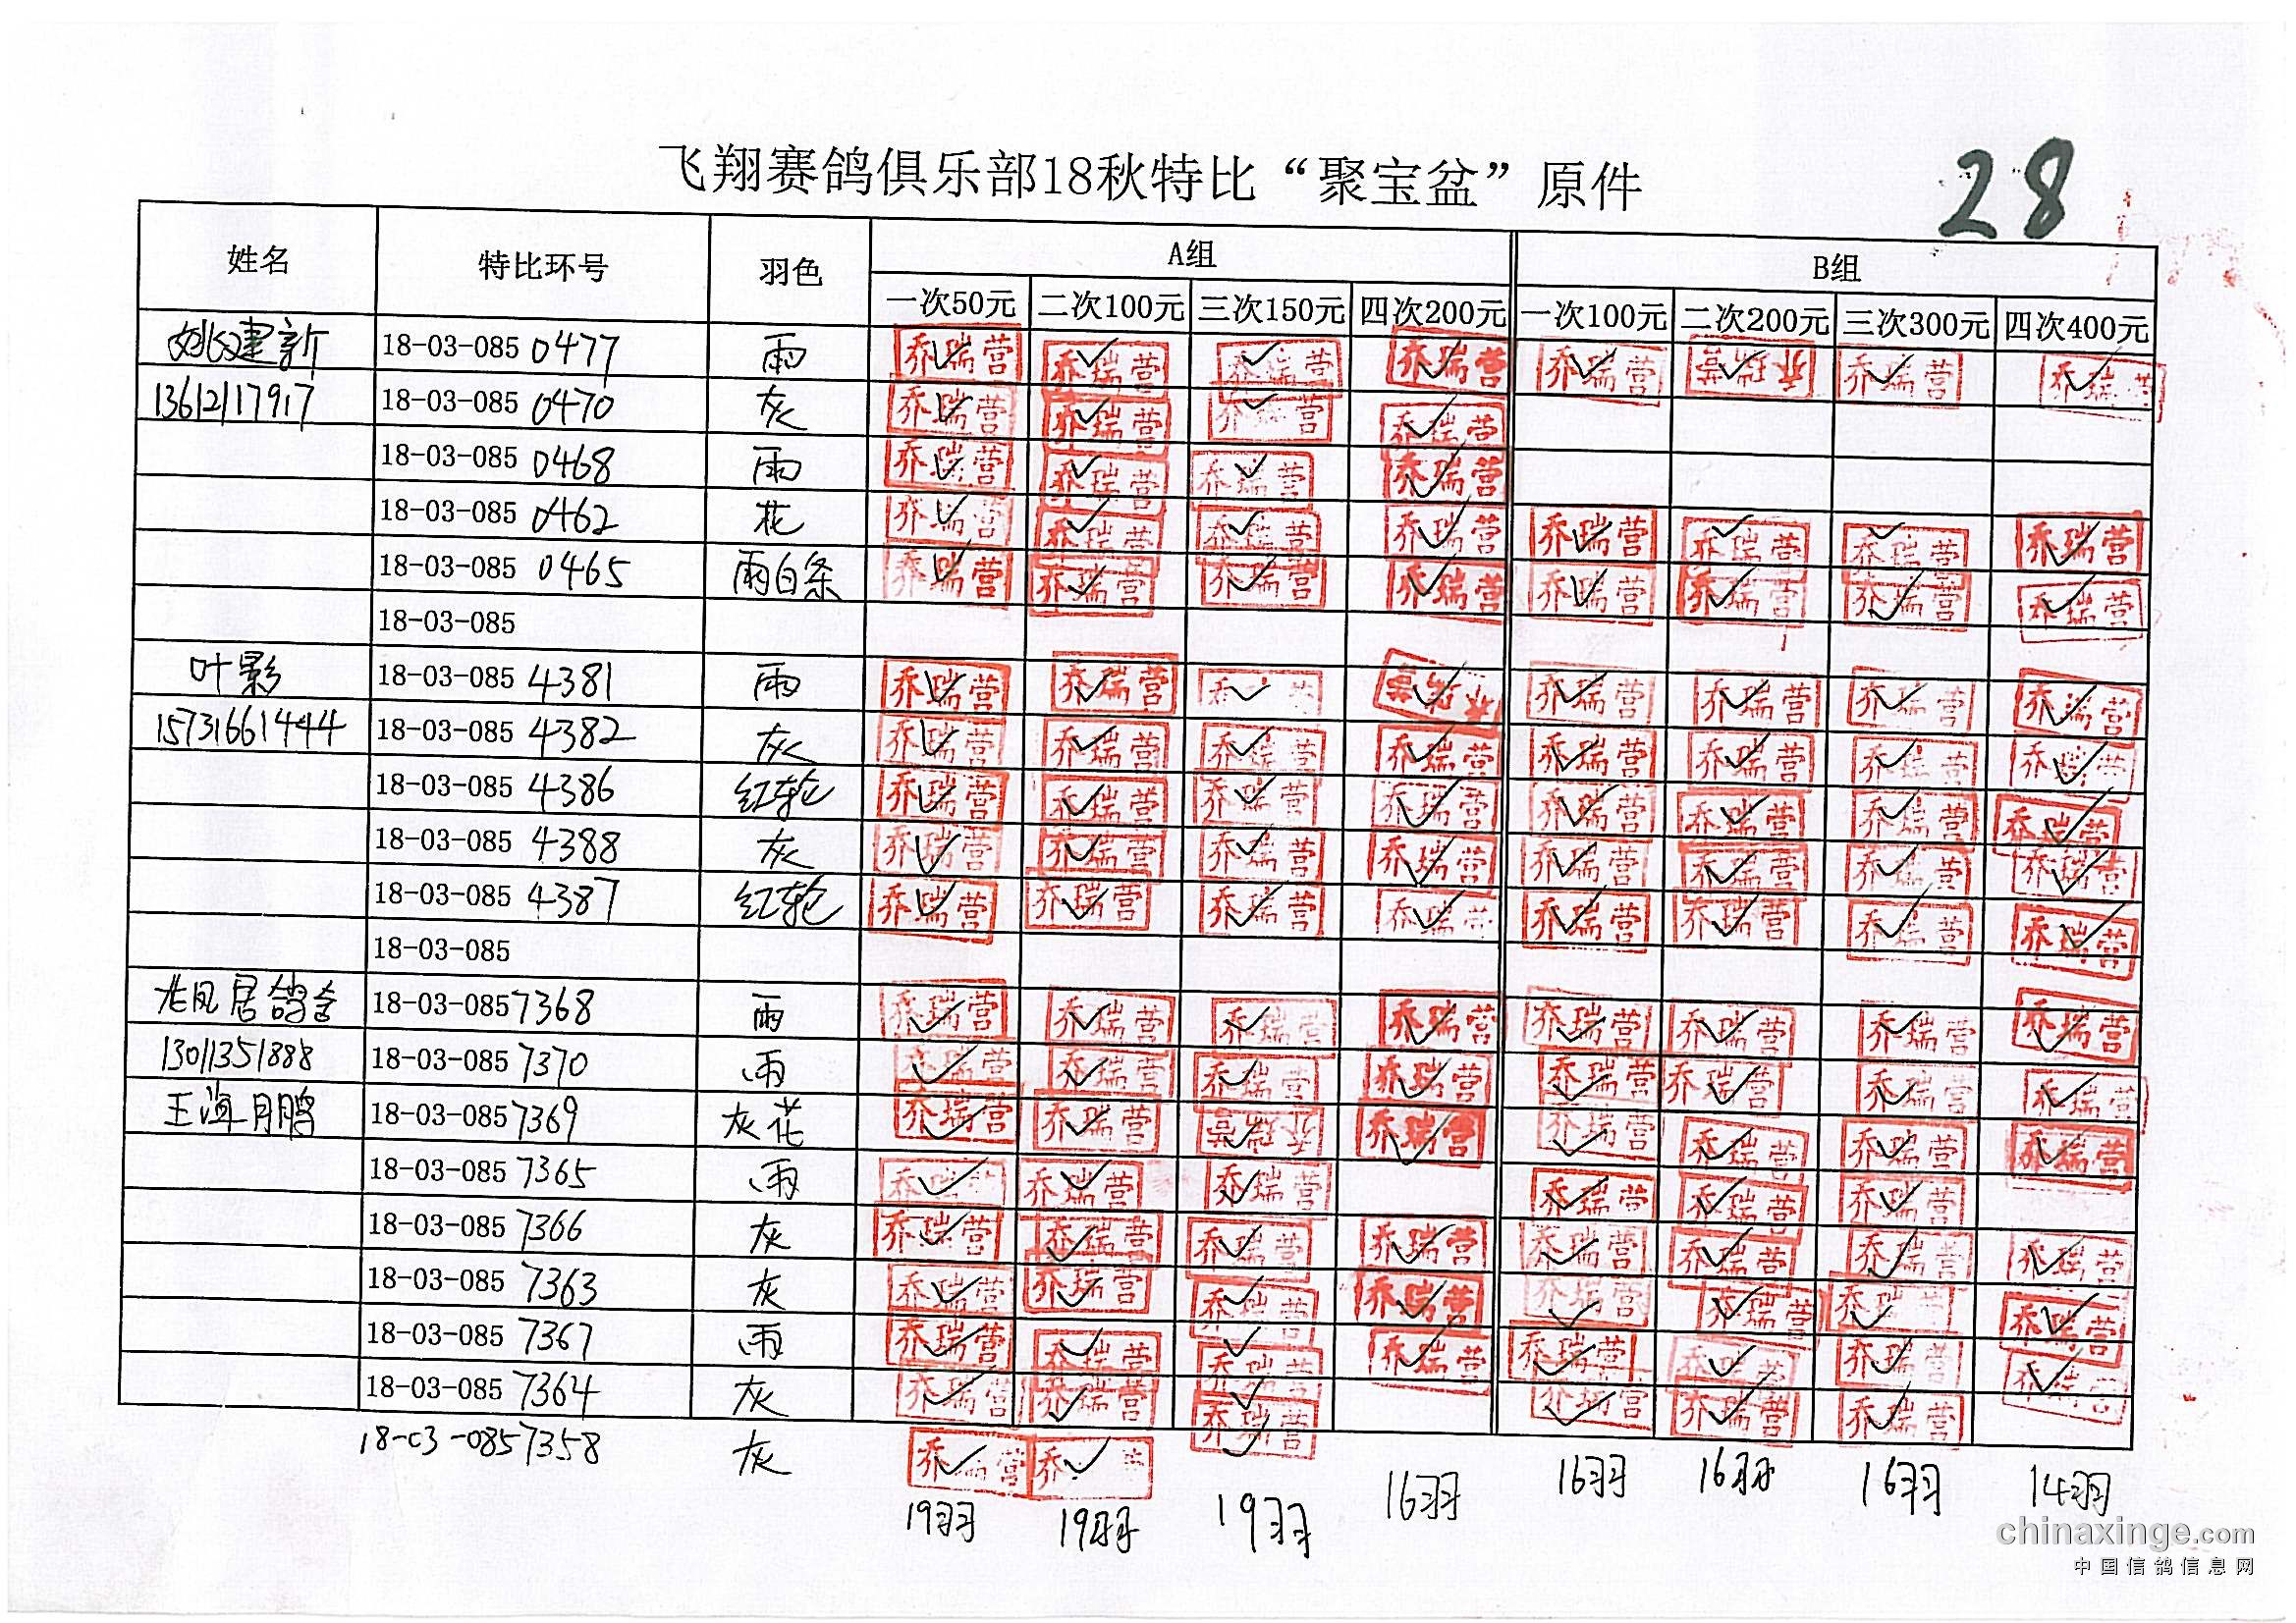 飞翔赛鸽俱乐部18秋特比“聚宝盆”原件
28
姓名 特比环号 羽色 A组 B组
一次50元 二次100元 三次150元 四次200元 一次100元 二次200元 三次300元 四次400元
姚建新 18-03-085 0477 雨 乔瑞营 乔瑞营 乔瑞营 乔瑞营 乔瑞营 乔瑞营 乔瑞营 乔瑞营
13612117917 18-03-085 0470 灰 乔瑞营 乔瑞营 乔瑞营 乔瑞营
18-03-085 0468 雨 乔瑞营 乔瑞营 乔瑞营 乔瑞营
18-03-085 0462 花 乔瑞营 乔瑞营 乔瑞营 乔瑞营 乔瑞营 乔瑞营 乔瑞营 乔瑞营
18-03-085 0465 雨白条 乔瑞营 乔瑞营 乔瑞营 乔瑞营 乔瑞营 乔瑞营 乔瑞营 乔瑞营
18-03-085
叶影 18-03-085 4381 雨 乔瑞营 乔瑞营 乔瑞营 乔瑞营 乔瑞营 乔瑞营 乔瑞营 乔瑞营
15731661444 18-03-085 4382 灰 乔瑞营 乔瑞营 乔瑞营 乔瑞营 乔瑞营 乔瑞营 乔瑞营 乔瑞营
18-03-085 4386 红轮 乔瑞营 乔瑞营 乔瑞营 乔瑞营 乔瑞营 乔瑞营 乔瑞营 乔瑞营
18-03-085 4388 灰 乔瑞营 乔瑞营 乔瑞营 乔瑞营 乔瑞营 乔瑞营 乔瑞营 乔瑞营
18-03-085 4387 红轮 乔瑞营 乔瑞营 乔瑞营 乔瑞营 乔瑞营 乔瑞营 乔瑞营 乔瑞营
18-03-085
居鸽舍 18-03-085 7368 雨 乔瑞营 乔瑞营 乔瑞营 乔瑞营 乔瑞营 乔瑞营 乔瑞营 乔瑞营
13011351888 18-03-085 7370 雨 乔瑞营 乔瑞营 乔瑞营 乔瑞营 乔瑞营 乔瑞营 乔瑞营 乔瑞营
王海鹏 18-03-085 7369 灰花 乔瑞营 乔瑞营 乔瑞营 乔瑞营 乔瑞营 乔瑞营 乔瑞营 乔瑞营
18-03-085 7365 雨 乔瑞营 乔瑞营 乔瑞营 乔瑞营 乔瑞营 乔瑞营
18-03-085 7366 灰 乔瑞营 乔瑞营 乔瑞营 乔瑞营 乔瑞营 乔瑞营 乔瑞营 乔瑞营
18-03-085 7363 灰 乔瑞营 乔瑞营 乔瑞营 乔瑞营 乔瑞营 乔瑞营 乔瑞营 乔瑞营
18-03-085 7367 雨 乔瑞营 乔瑞营 乔瑞营 乔瑞营 乔瑞营 乔瑞营 乔瑞营 乔瑞营
18-03-085 7364 灰 乔瑞营 乔瑞营 乔瑞营 乔瑞营 乔瑞营 乔瑞营
18-03-0857358 灰 乔瑞营 乔
19羽 19羽 19羽 16羽 16羽 16羽 16羽 14羽
chinaxinge.com
中国信鸽信息网